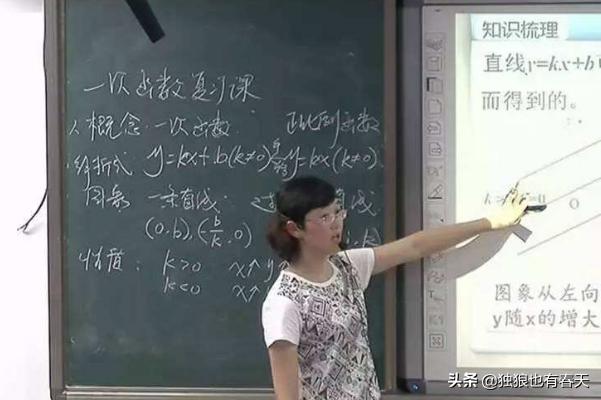 一次函数复习课
概念 一次函数 正比例函数
解析式 y=kx+b(k≠0) y=kx(k≠0)
图象 一条直线
(0,b),(-b/k,0)
性质: k>0 x↑ y
k<0 x↑
知识梳理
直线y=kx+b
而得到的。
0
图象从左向
y随x的增大
头条 @独狼也有春天